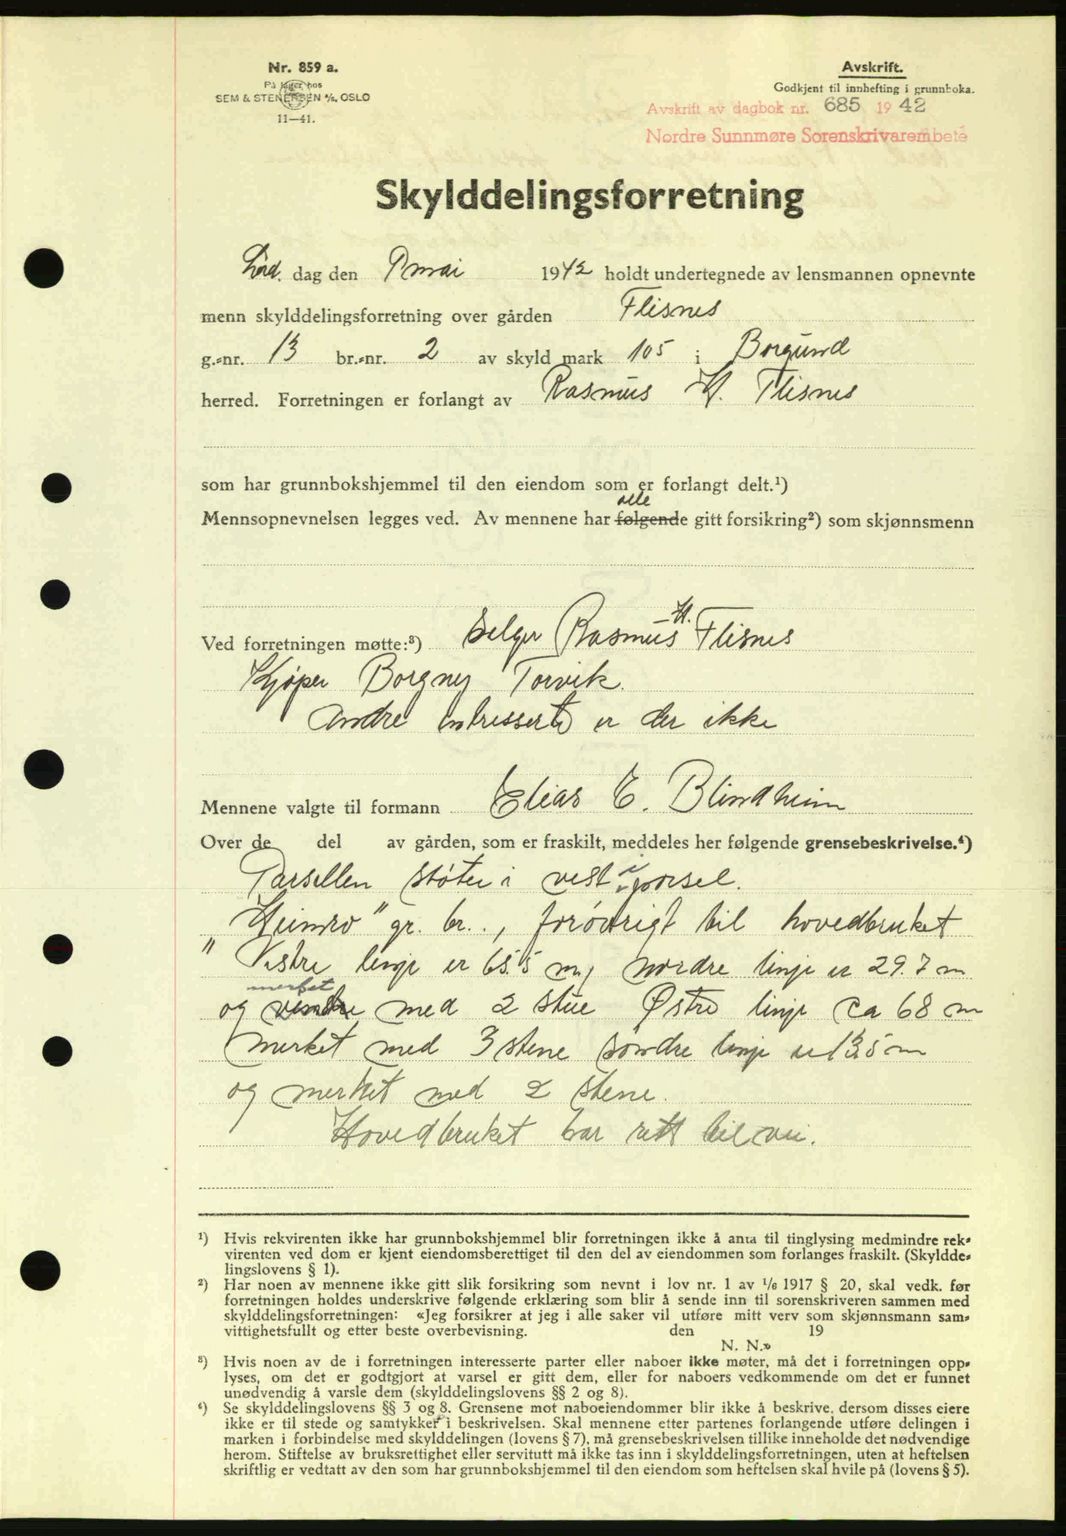 Nr. 859 a.
På lager hos
SEM & STENERSEN A/S. OSLO
11—41.
Avskrift.
Godkjent til innhefting i grunnboka.
Avskrift av dagbok nr. 685 1942
Nordre Sunnmøre Sorenskrivarembete
Skylddelingsforretning
Lørd. dag den 9 mai 1942 holdt undertegnede av lensmannen opnevnte
menn skylddelingsforretning over gården Flisnes
g.-nr. 13 br.-nr. 2 av skyld mark 105 i Borgund
herred. Forretningen er forlangt av Rasmus H. Flisnes
som har grunnbokshjemmel til den eiendom som er forlangt delt.¹)
alle
Mennsopnevnelsen legges ved. Av mennene har følgende gitt forsikring²) som skjønnsmenn
Ved forretningen møtte:³) Selger Rasmus H. Flisnes
Kjøper Borgny Torvik.
Andre intresserte er der ikke
Mennene valgte til formann Elias E. Blindheim
Over de del av gården, som er fraskilt, meddeles her følgende grensebeskrivelse.⁴)
Parsellen støter i vest i parsel.
„Heimro" gr. br. ., forøvrigt til hovedbruket
Vestre linje er 65.5 m, nordre linje er 29.7 m
merket
og med 2 stene Østre linje ca 68 m
merket med 3 stene søndre linje er 13.5 m
og merket med 2 stene.
Hovedbruket har rett til vei.
¹) Hvis rekvirenten ikke har grunnbokshjemmel blir forretningen ikke å anta til tinglysing medmindre rek-
virenten ved dom er kjent eiendomsberettiget til den del av eiendommen som forlanges fraskilt. (Skyldde-
lingslovens § 1).
²) Har noen av mennene ikke gitt slik forsikring som nevnt i lov nr. 1 av 1/6 1917 § 20, skal vedk. før
forretningen holdes underskrive følgende erklæring som blir å sende inn til sorenskriveren sammen med
skylddelingsforretningen: «Jeg forsikrer at jeg i alle saker vil utføre mitt verv som skjønnsmann sam-
vittighetsfullt og etter beste overbevisning. den 19
N. N.»
³) Hvis noen av de i forretningen interesserte parter eller naboer ikke møter, må det i forretningen opp-
lyses, om det er godtgjort at varsel er gitt dem, eller for naboers vedkommende om det er funnet
unødvendig å varsle dem (skylddelingslovens §§ 2 og 8).
⁴) Se skylddelingslovens §§ 3 og 8. Grensene mot naboeiendommer blir ikke å beskrive, dersom disses eiere
ikke er til stede og samtykker i beskrivelsen. Skal mennene etter partenes forlangende utføre delingen i
marken i forbindelse med skylddelingen (lovens § 7), må grensebeskrivelsen tillike inneholde det nødvendige
herom. Stiftelse av bruksrettighet eller servitutt må ikke tas inn i skylddelingsforretningen, uten at heftelsen
skriftlig er vedtatt av den som har grunnbokshjemmel til den eiendom som heftelsen skal hvile på (lovens § 5).